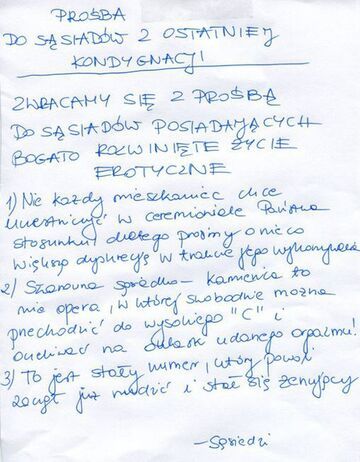 PROŚBA
DO SĄSIADÓW Z OSTATNIEJ
KONDYGNACJI
ZWRACAMY SIĘ Z PROŚBĄ
DO SĄSIADÓW POSIADAJĄCYCH
BOGATO ROZWINIĘTE ŻYCIE
EROTYCZNE
1) Nie każdy mieszkaniec chce
uczestniczyć w ceremoniale Państwa
stosunku dlatego prosimy o nieco
większą dyskrecję w trakcie jego wykonywania
2) Szanowna Sąsiadko - kamienica to
nie opera, w której swobodnie można
przechodzić do wysokiego "C" i
oczekiwać na oklaski udanego orgazmu!
3) To jest stały numer, który powoli
zaczął już nudzić i stał się żenujący
- Sąsiedzi